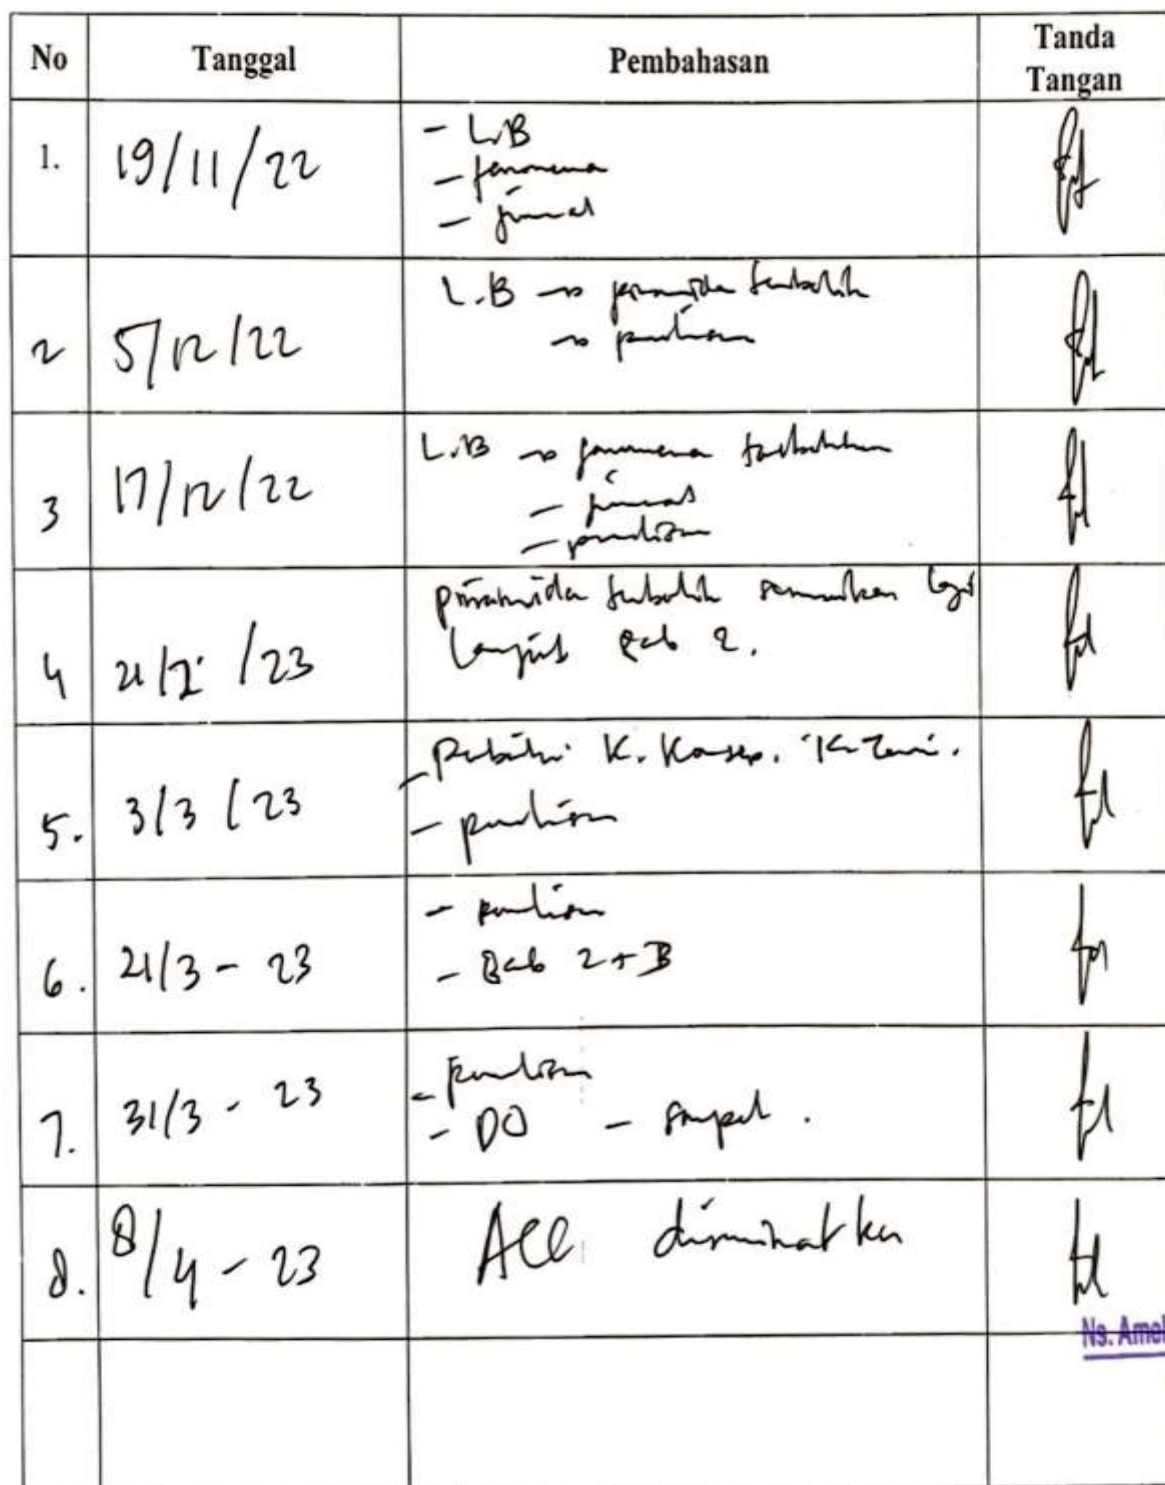 No Tanggal Pembahasan Tanda Tangan
1. 19/11/22 - L.B
- fenomena
- jurnal
2 5/12/22 L.B → piramida terbalik
→ penulisan
3 17/12/22 L.B → fenomena tambahkan
- jurnal
- penulisan
4 21/2 /23 piramida terbalik sesuaikan lagi
lanjut Bab 2.
5. 3/3 /23 - Perbaiki K. Konsep. K. Teori.
- penulisan
6. 21/3 - 23 - penulisan
- Bab 2 + 3
7. 31/3 - 23 - penulisan
- DO - sampel .
8. 8/4 - 23 ACC diseminarkan
Ns. Amel